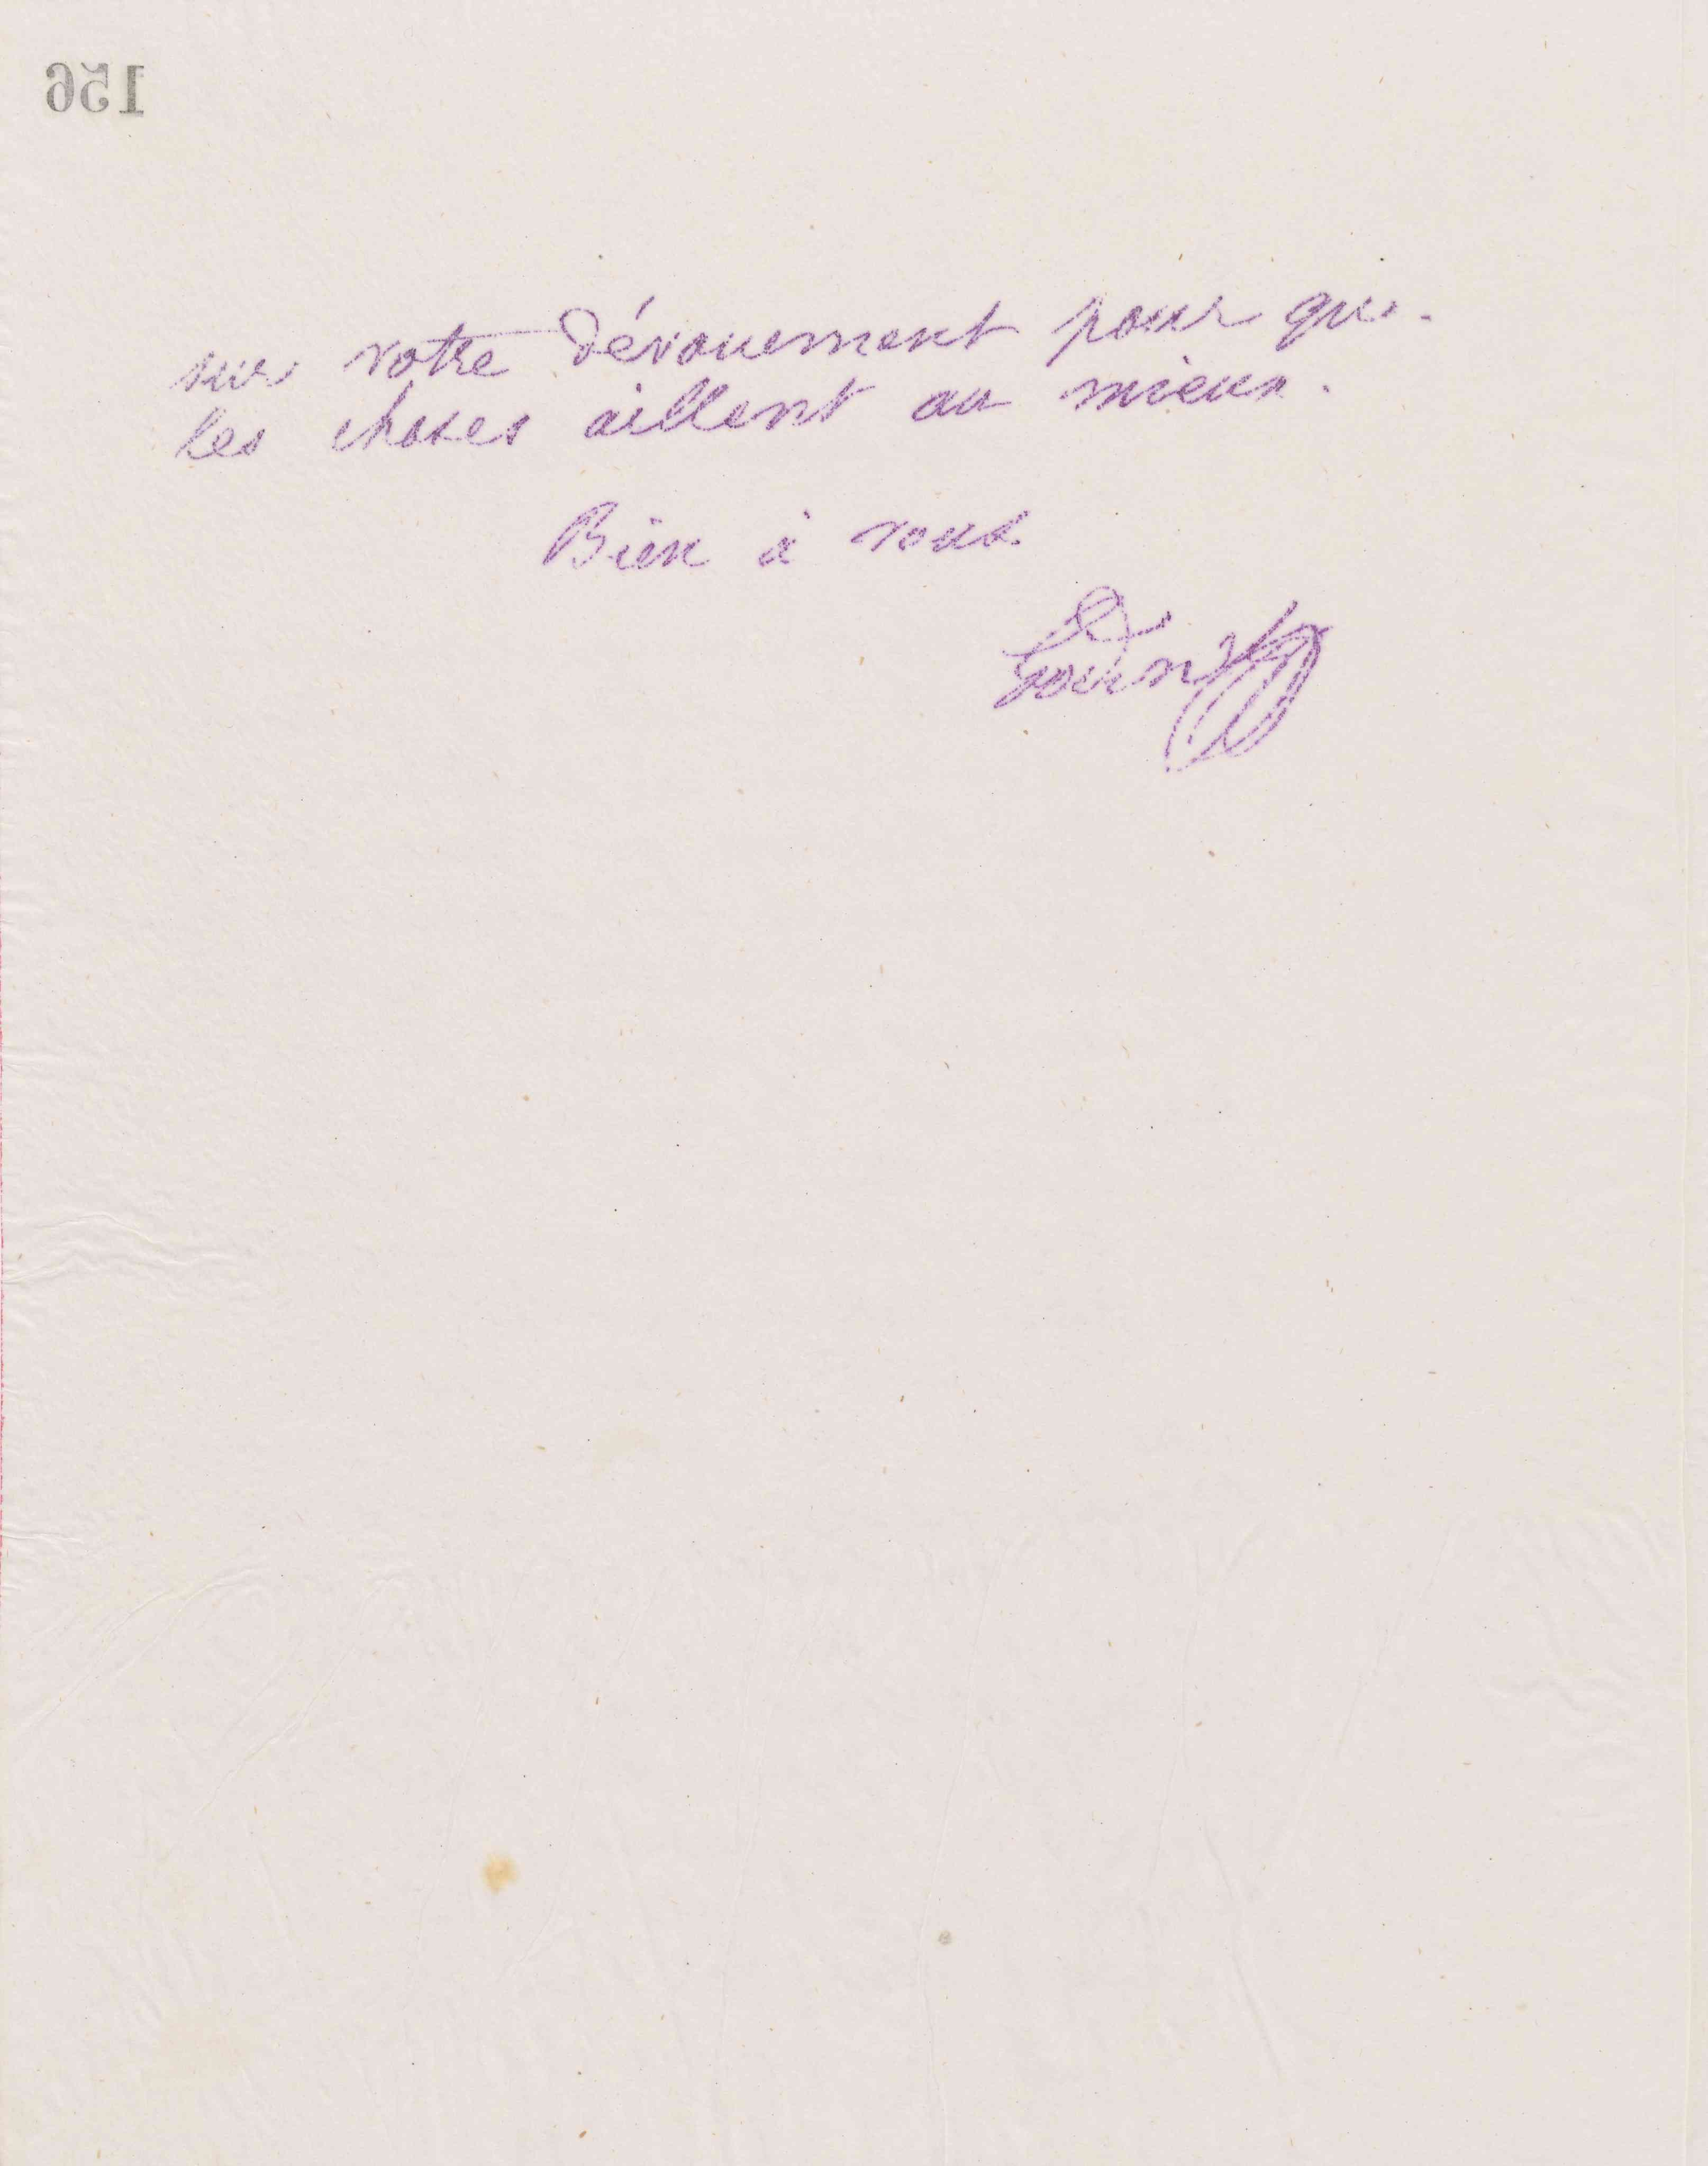 156
sur votre dévouement pour que
les choses aillent au mieux.
Bien à vous
Godin